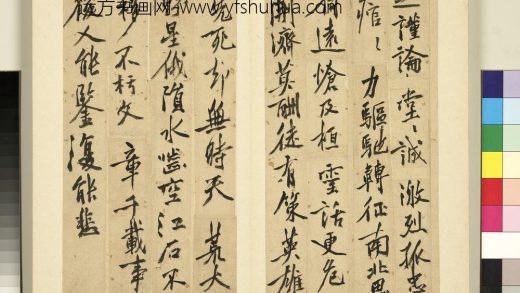 方书画网 www.yfshuhua.com
謹論堂〻誠激烈孤忠
〻力驅馳轉征南北
遠愴及桓靈話更危
開濟莫酬徒有策英雄
死却無時天荒大
星俄隕水嚙空江石不
不朽文章千載事
後人能鑒復能悲